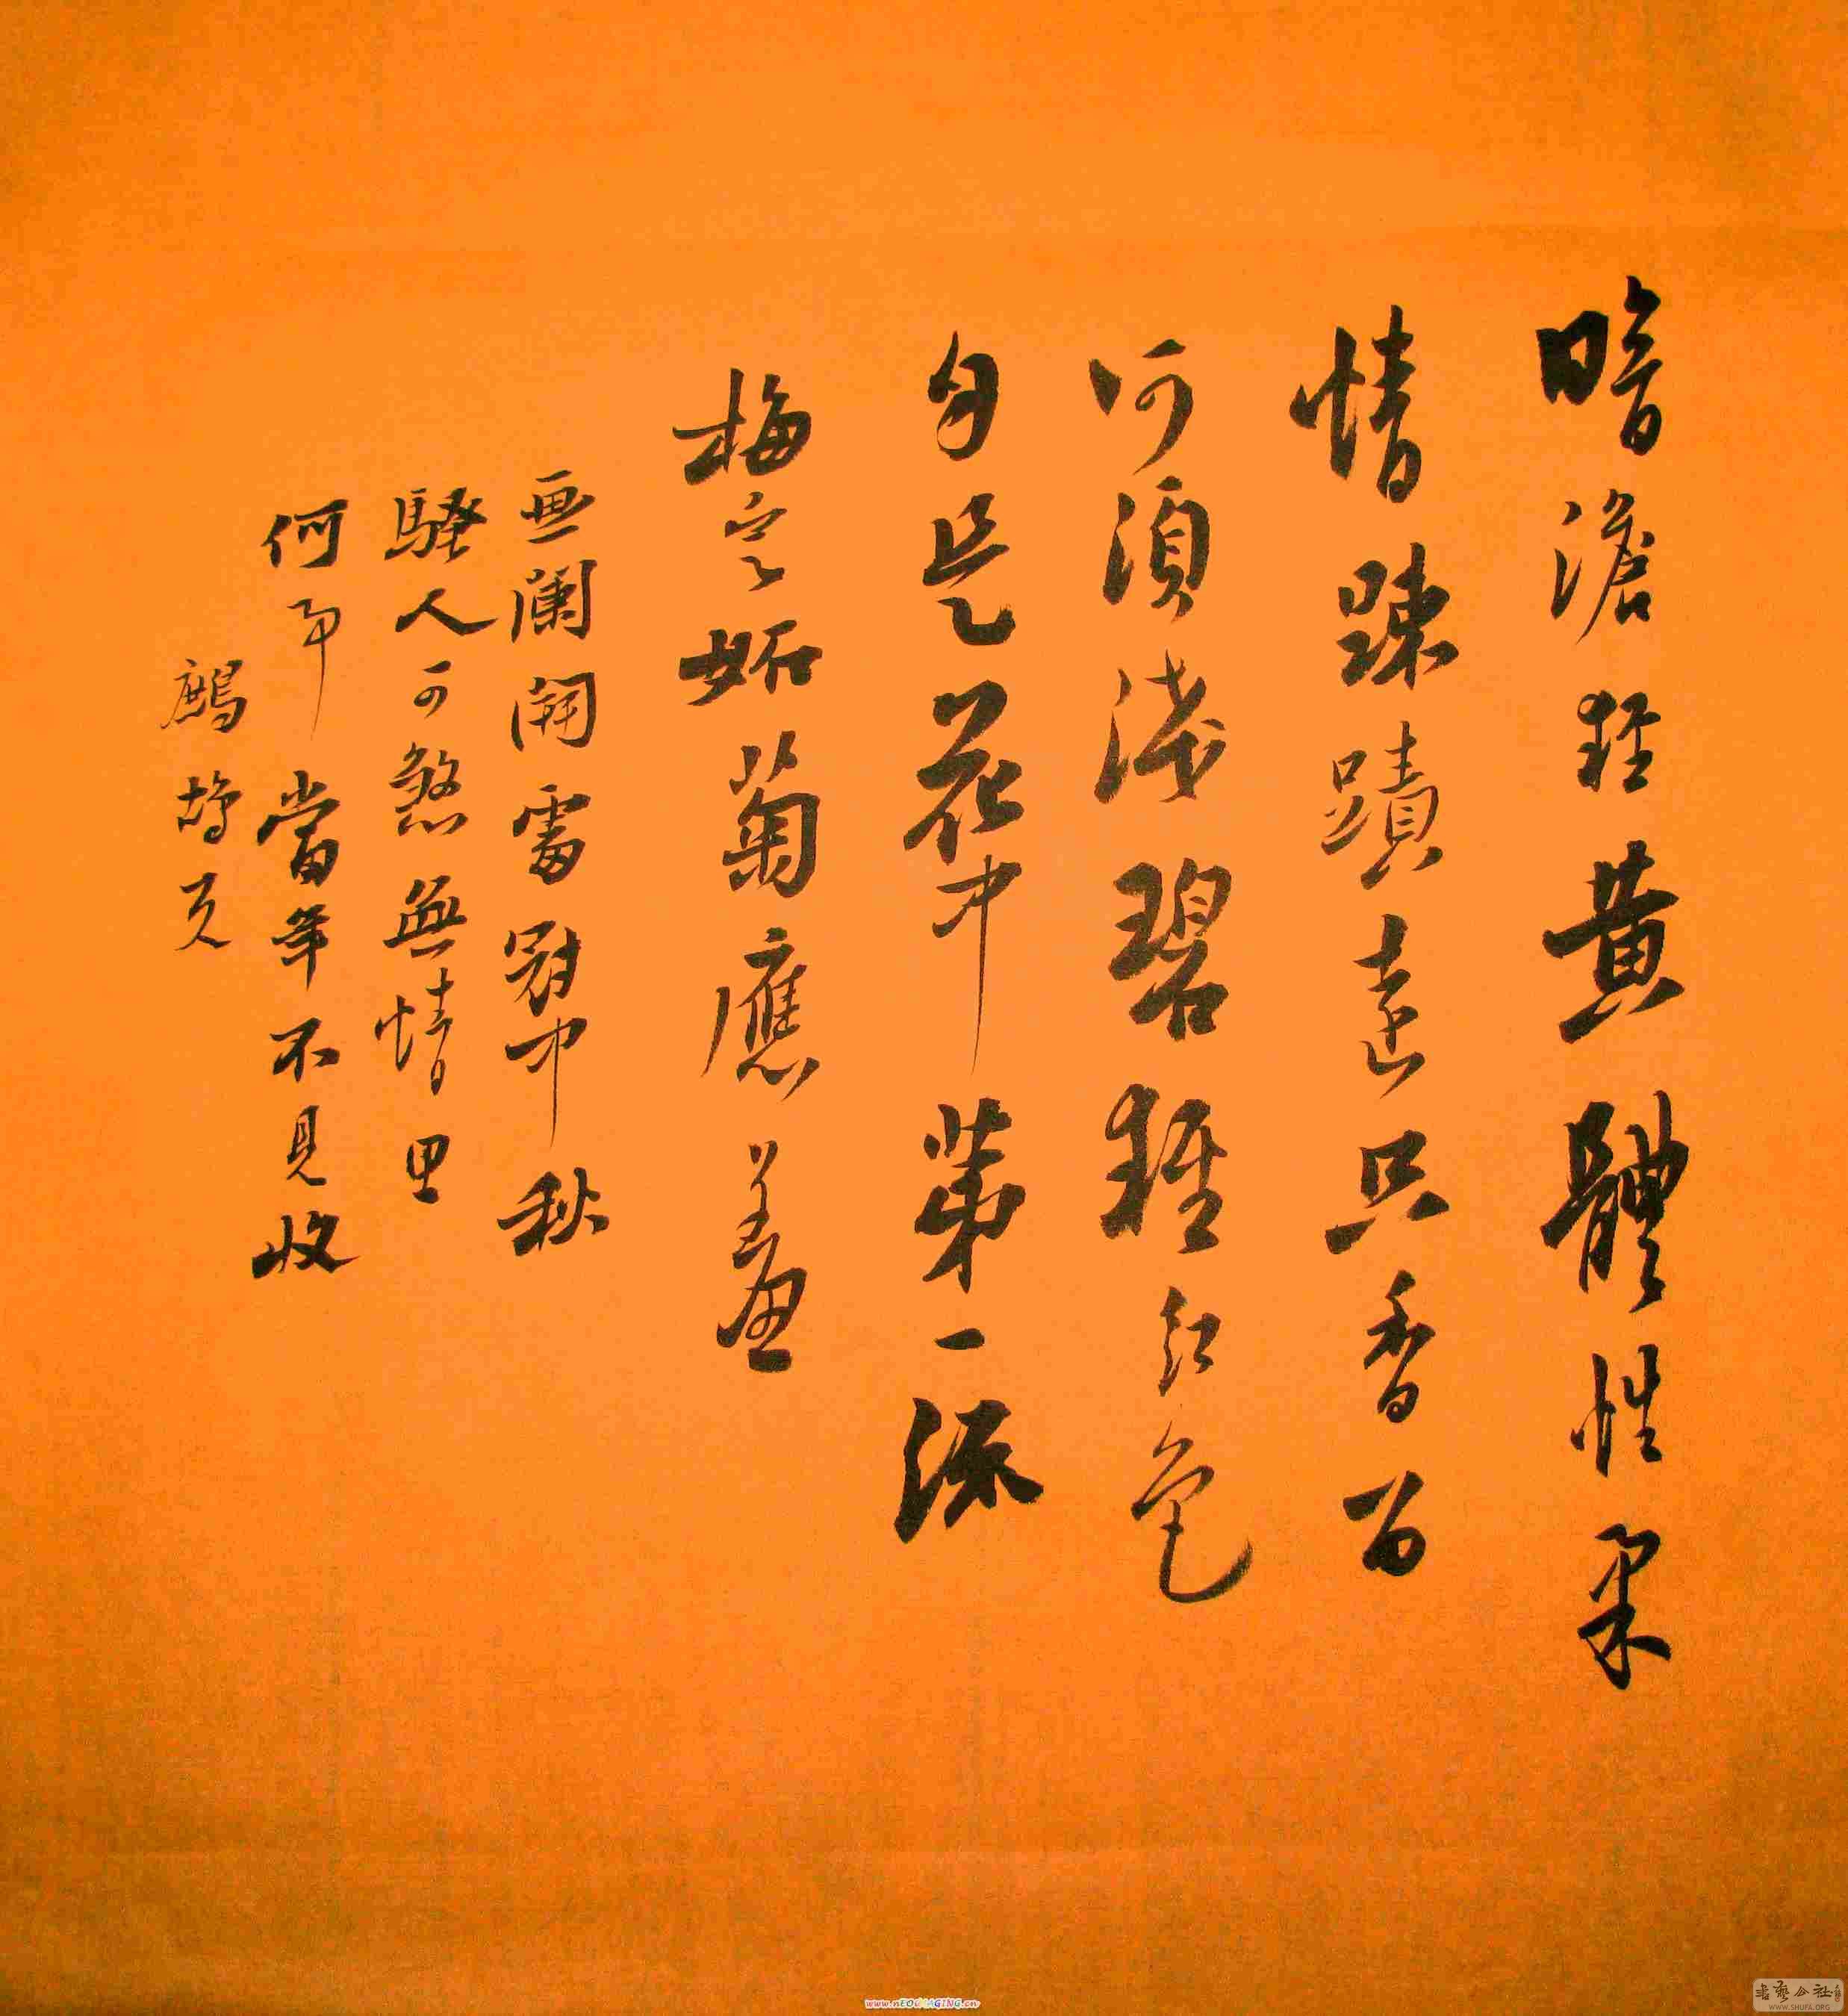 暗澹輕黃體性柔
情踈蹟遠只香留
何須淺碧輕紅色
自是花中第一流
梅定妬菊應羞
画闌開處冠中秋
騷人可煞無情思
何事當年不見收
鷓鴣天
www.nEOiMAGING.cn
書藝公社
WWW.SHUFA.ORG